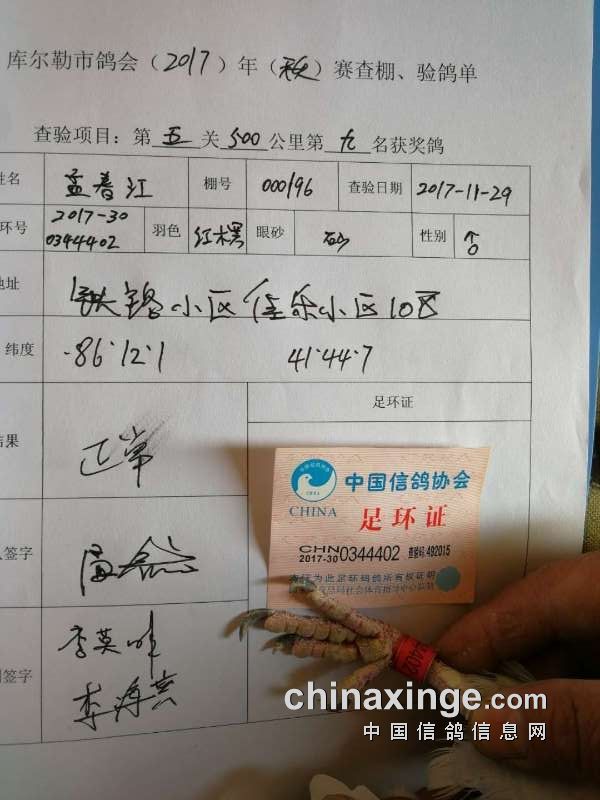 库尔勒市鸽会（2017）年（秋）赛查棚、验鸽单
查验项目：第五关500公里第九名获奖鸽
姓名 孟春江 棚号 000196 查验日期 2017-11-29
环号 2017-30 0344402 羽色 眼砂 砂 性别 ♂
地址 小区佳乐小区10区
纬度 86·12·1 41·44·7
结果 正常
足环证
签字
签字 李英
李海
中国信鸽协会
CHINA
足环证
CHN
2017-30 0344402 查验码:492015
为此足环鸽所有权证明
chinaxinge.com
中国信鸽信息网